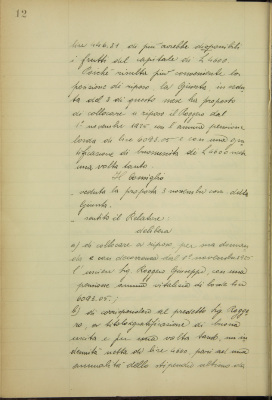 12
di più avrebbe disponibili
i frutti del capitale di L. 4000.
Perchè risulta più conveniente la
posizione di riposo, la Giunta in sedu
ta del 3 di questo mese ha proposto
di collocare a riposo il Roggero dal
1° novembre con l'annua pensione
lorda di lire 6093.05 e con una gra
tificazione di benemerita di L. 4000 netta
una volta tanto.
Il Consiglio
veduta la proposta 3 novembre della
Giunta.
sentito il Relatore:
delibera
a) di collocare a riposo, per sua doman
da e con decorrenza dal 1° novembre
Sig. Roggero Giuseppe, con una
pensione annua vitalizia di lire
6093.05;
b) di corrispondere al predetto Sig. Rogge
ro, a titolo gratificazione di buona
uscita e per una volta tanto, una in
dennità netta di lire 4000, pari ad una
annualità dello stipendio